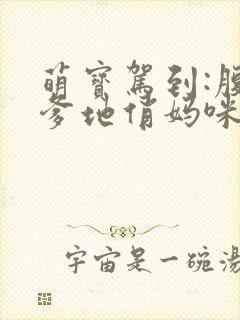 萌寶駕到:腹
爹地俏媽咪
宇宙是一碗湯